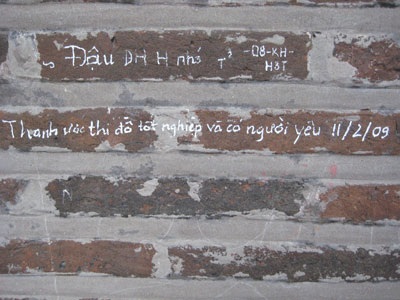 Đậu ĐH H nhớ T³ -08-KH-
H3T
Thanh ước thi đỗ tốt nghiệp và có người yêu 11/2/09